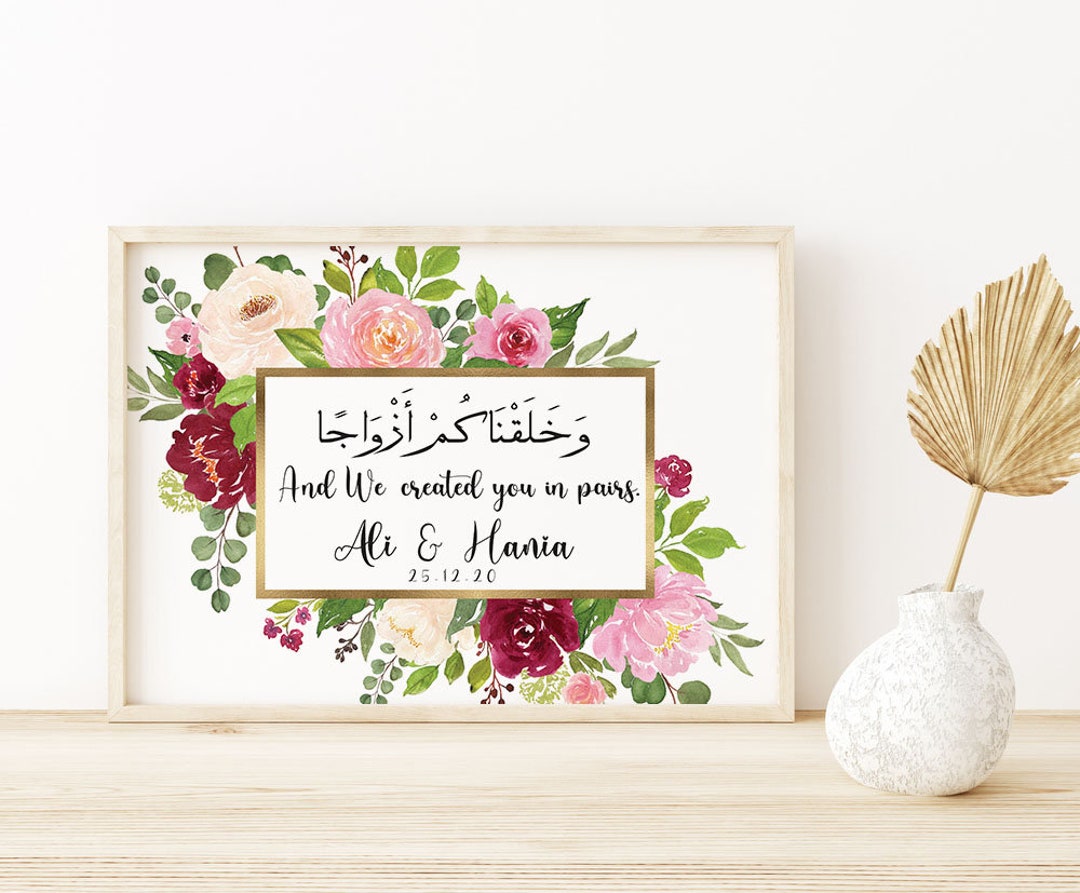 وَخَلَقْنَاكُمْ أَزْوَاجًا
And We created you in pairs.
Ali & Hania
25.12.20